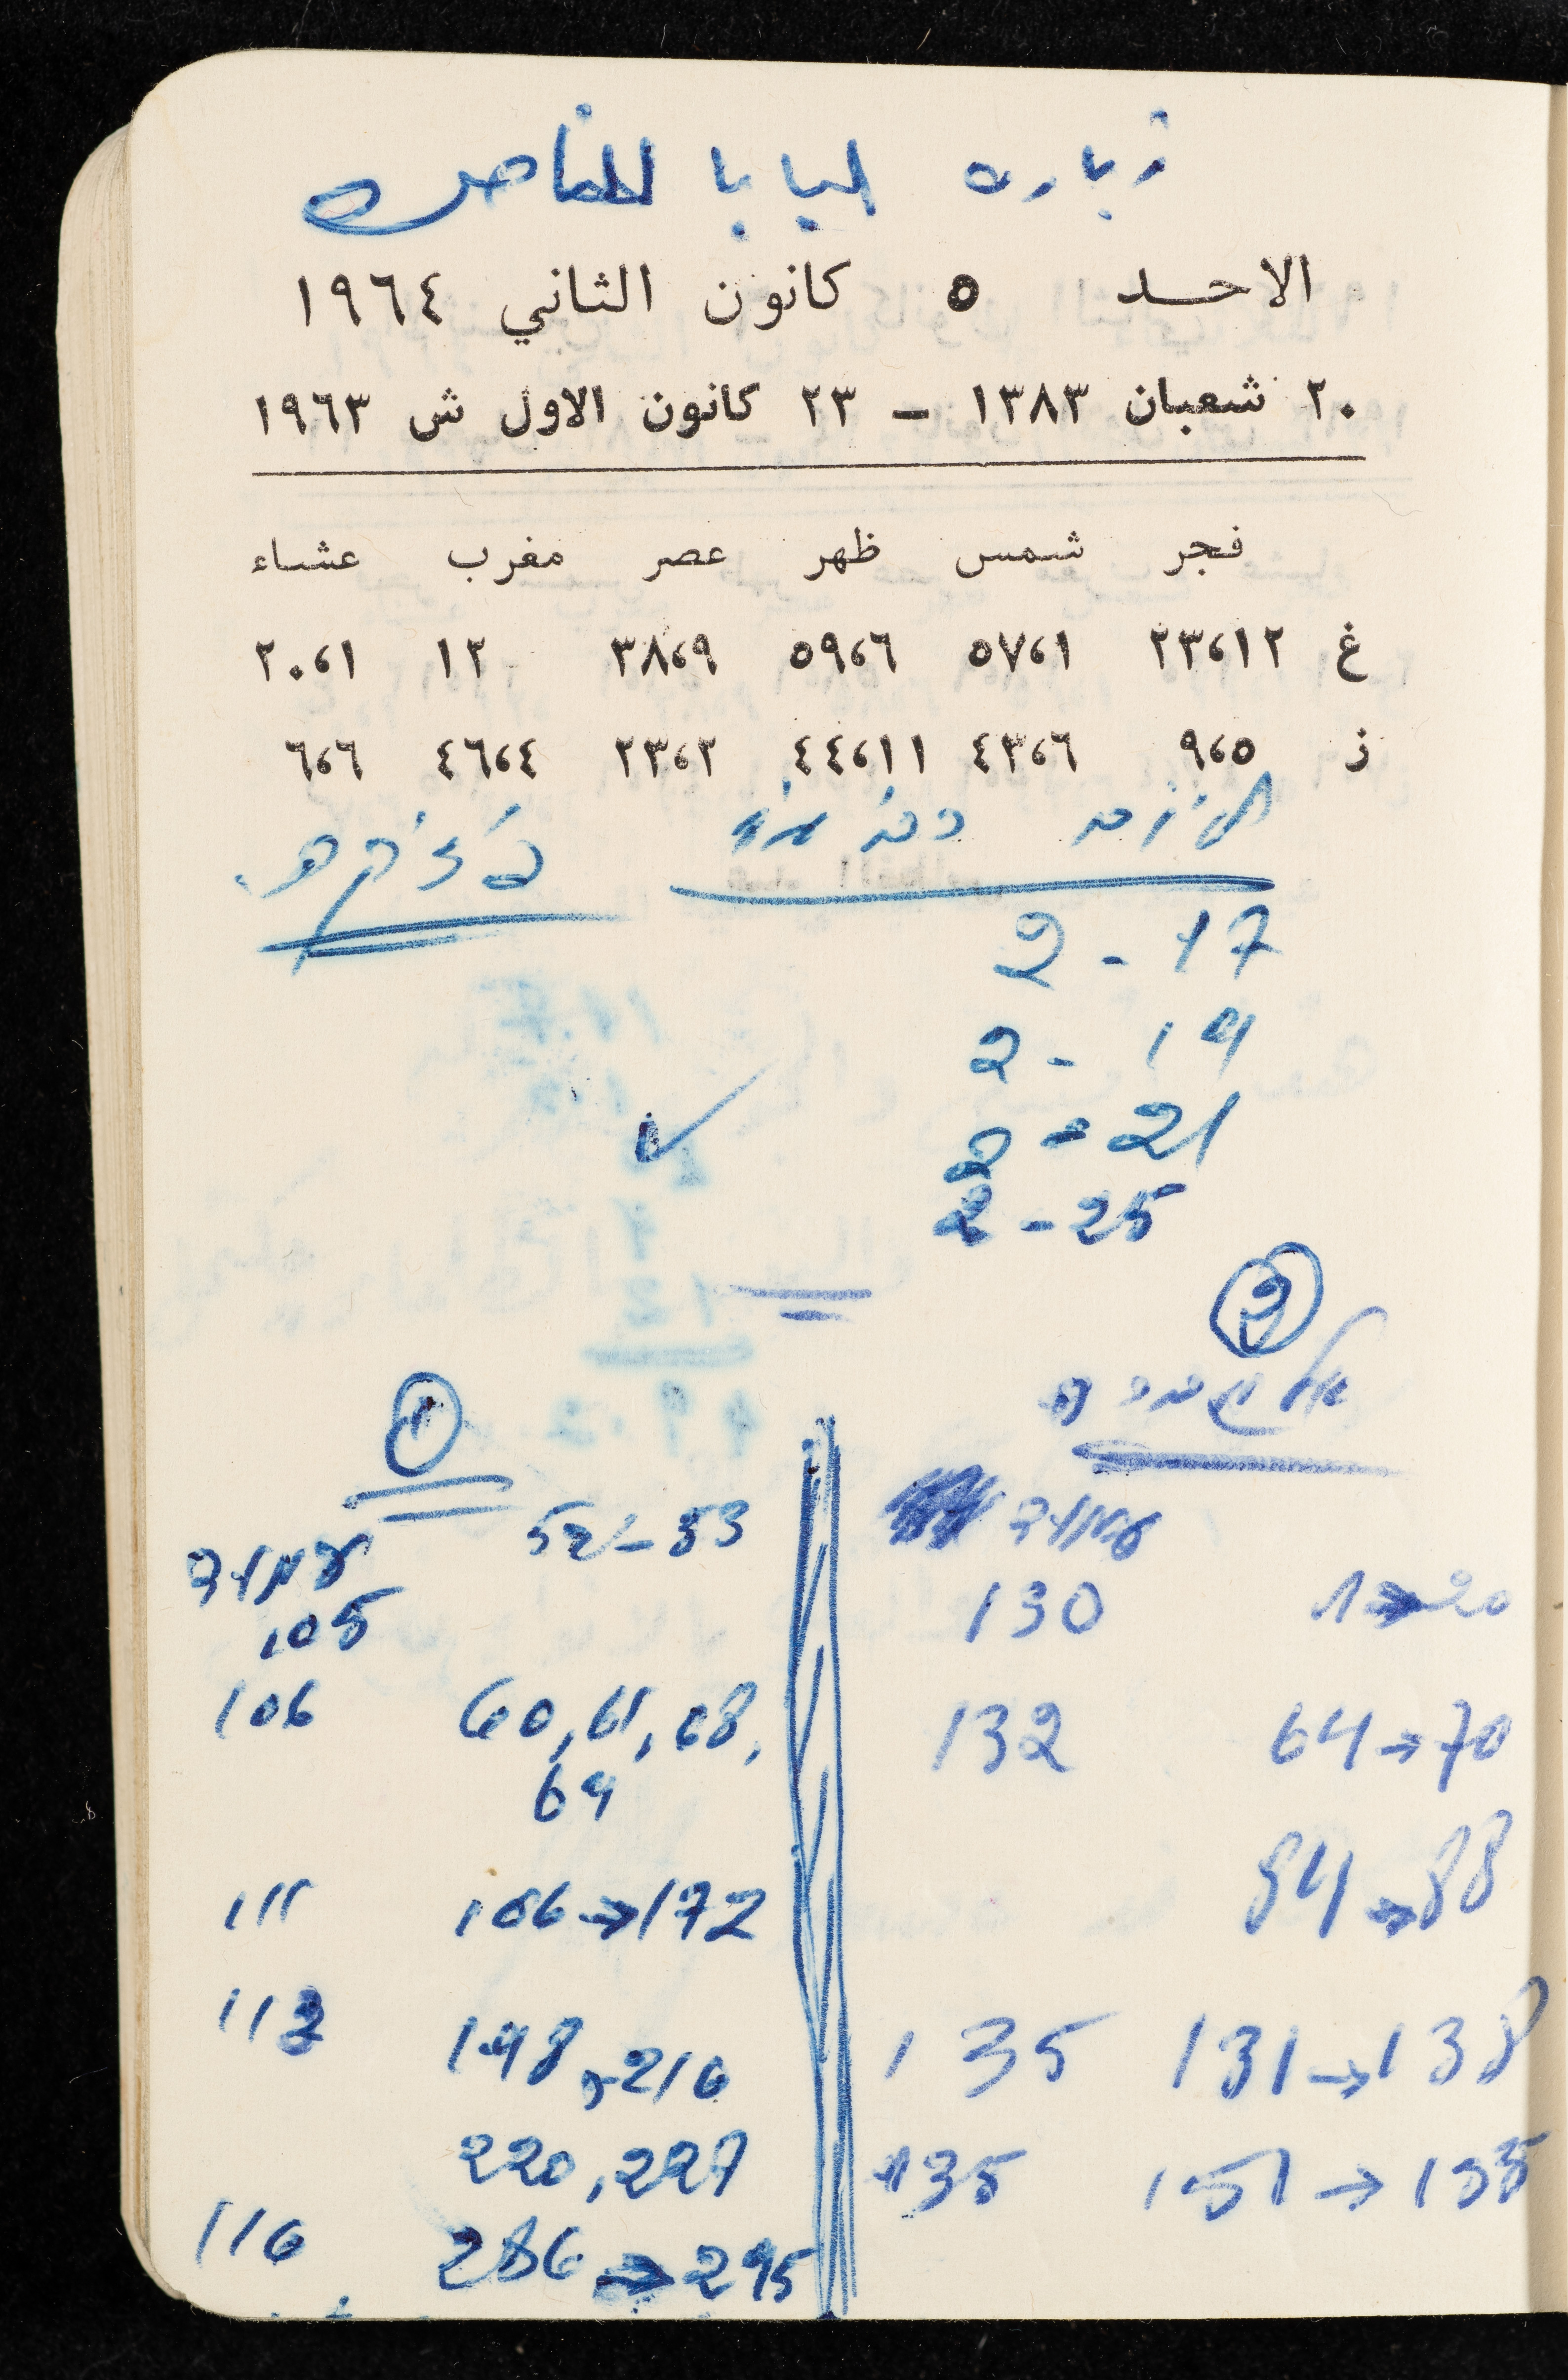 زياره البابا للناصره
الاحد ٥ كانون الثاني ١٩٦٤
٢٠ شعبان ١٣٨٣ – ٢٣ كانون الاول ش ١٩٦٣
فجر شمس ظهر عصر مغرب عشاء
غ ٢٣،١٢ ٥٧،١ ٥٩،٦ ٣٨،٩ ١٢ ٢٠،١
ز ٩،٥ ٤٣،٦ ٤٤،١١ ٢٣،٢ ٤٦،٤ ٦،٦
2 - 17
2 - 19
2 - 21
2 - 25
2
עמוד
130 1→20
132 64→70
84→88
135 131→138
135 151→155
1
עמוד 52-53
105
106 60, 61, 68,
69
111 166→172
113 198→216
220, 227
116 286→295